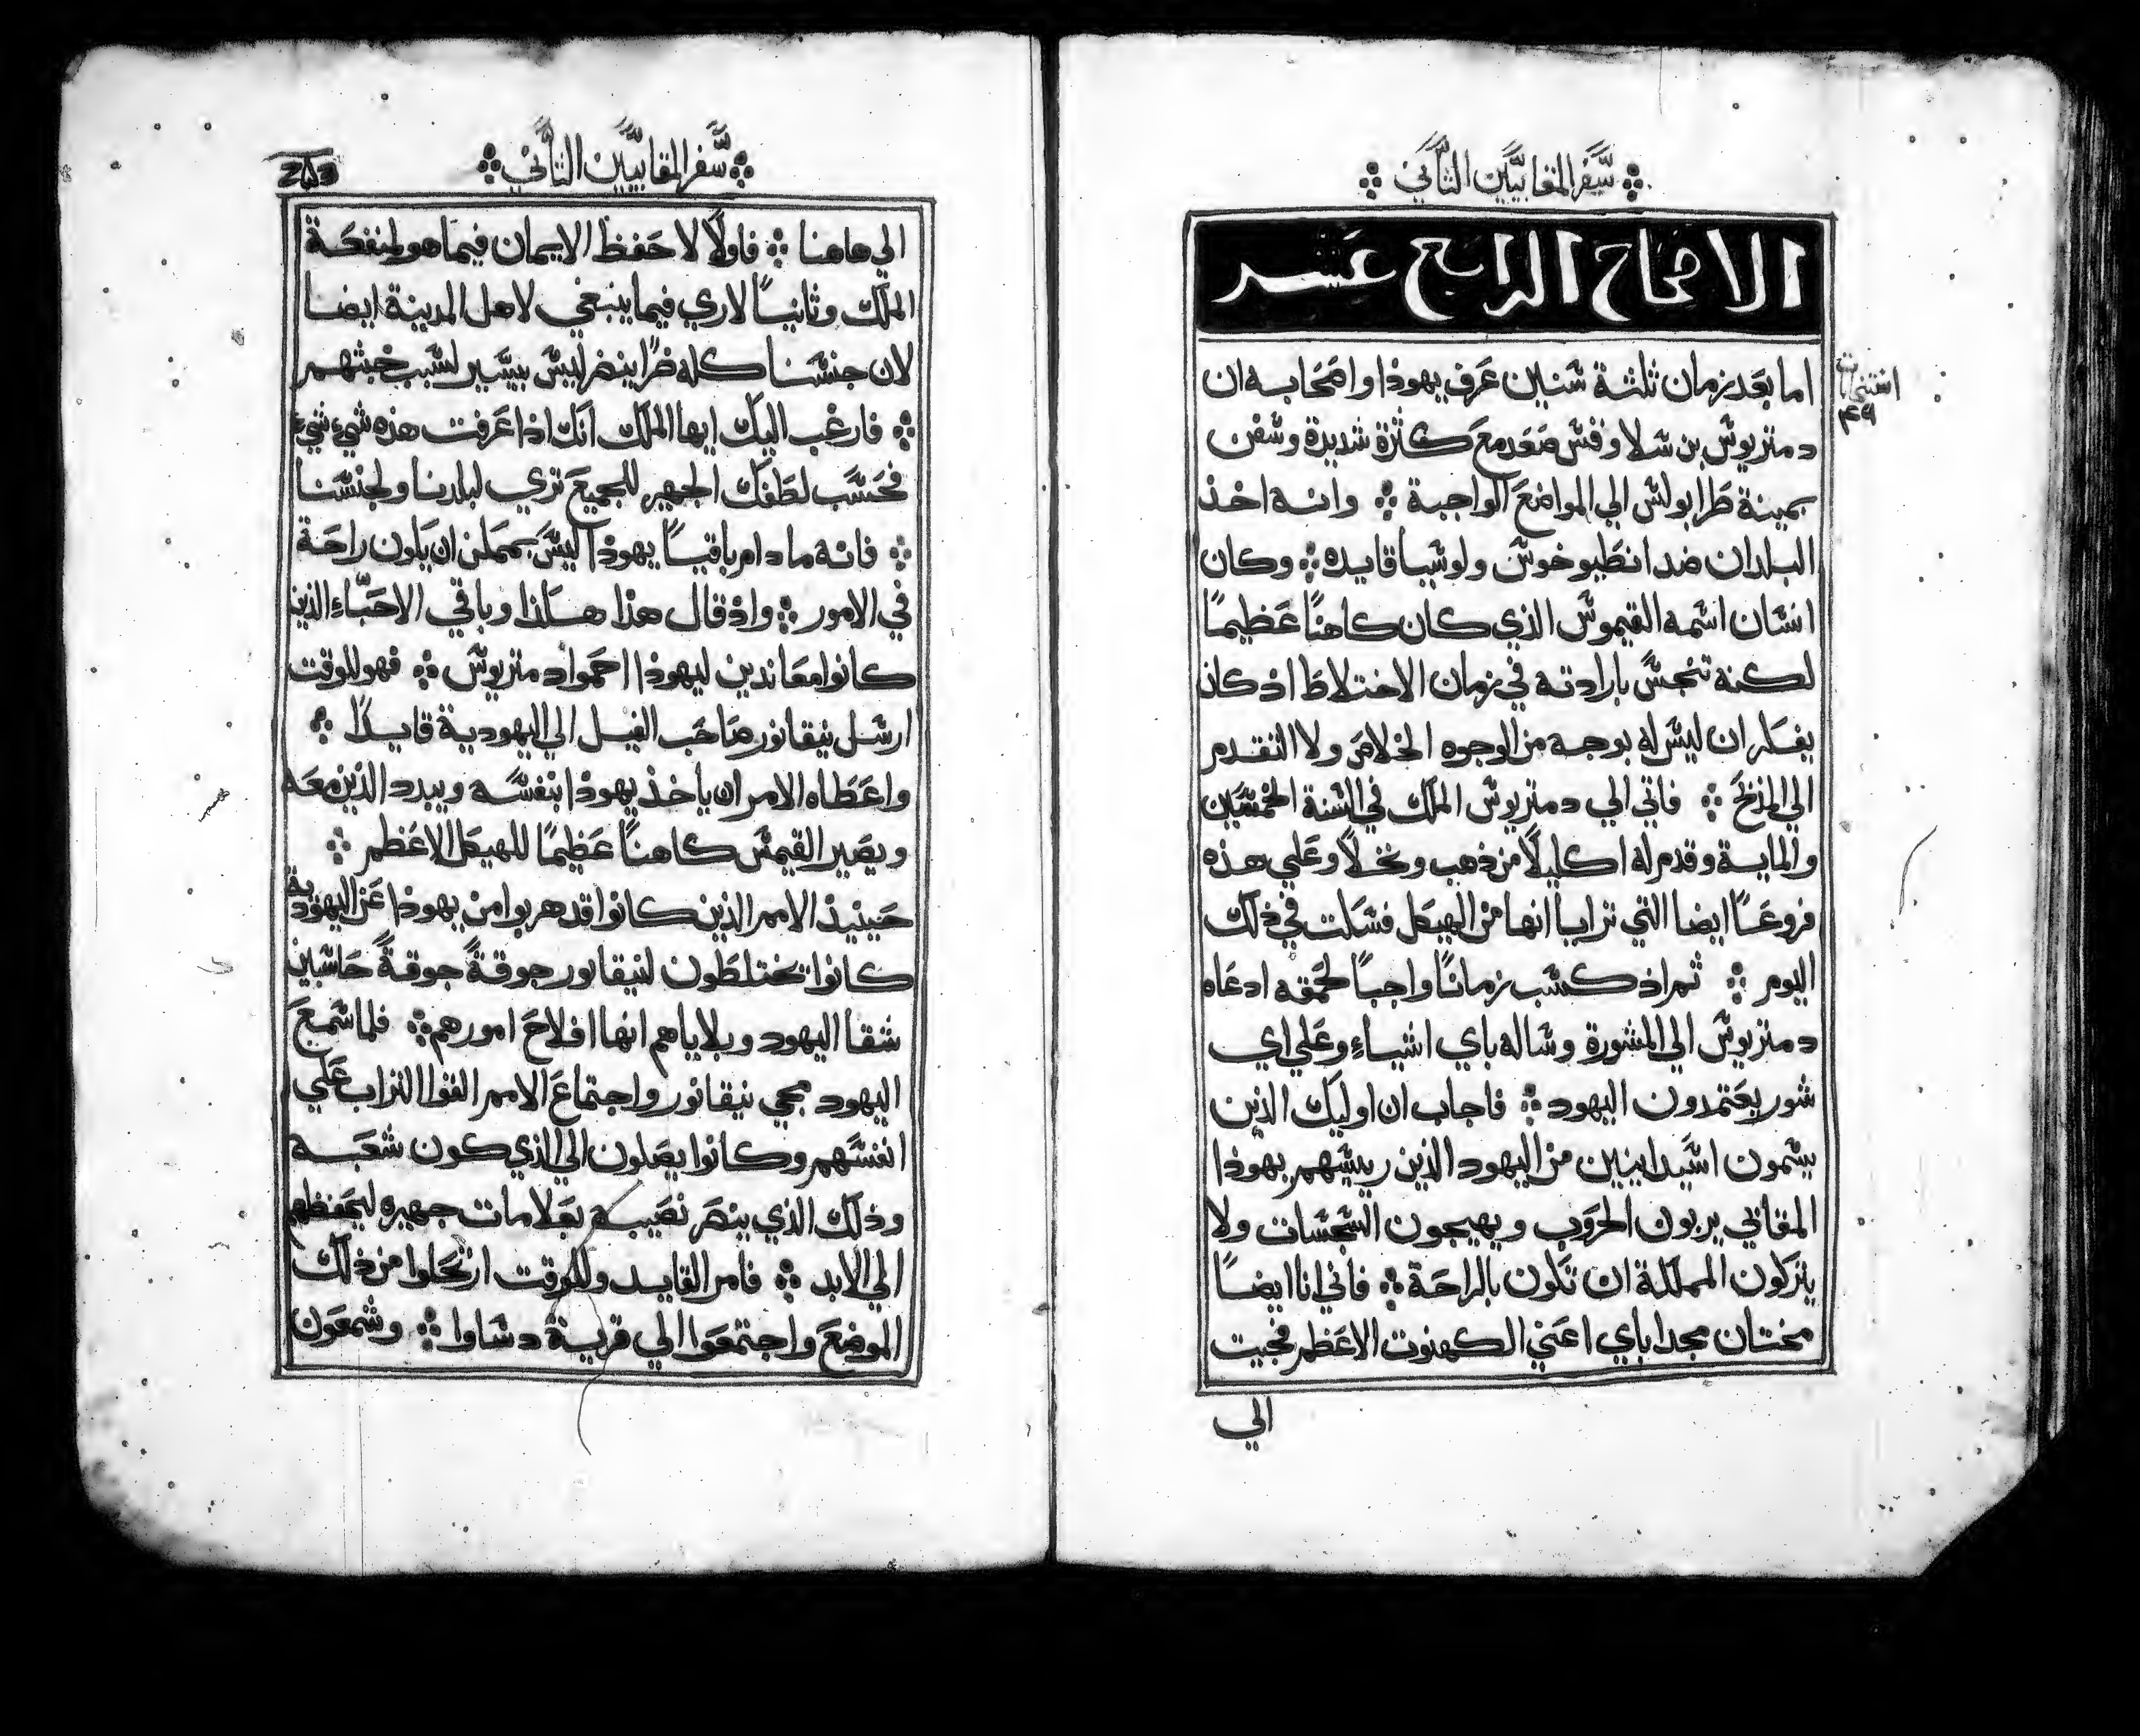 سفر المقابيين الثاني
الاصحاح الرابع عشر
اما بعد زمان ثلثة سنين عرف يهوذا واصحابه ان
دمتريوس بن سلاوقس صعد مع كثرة شديدة وسفن
بمينة طرابولس الي المواضع الواجبة ۞ وانه اخذ
البلدان ضد انطيوخوس ولوسيا قايده ۞ وكان
انسان اسمه القيموس الذي كان كاهنًا عظيمًا
لكنه تنجس بارادته في زمان الاختلاط اذ كان
يفكر ان ليس له بوجه من الوجوه الخلاص ولا التقدم
الي المذبح ۞ فاتي الي دمتريوس الملك في السنة الخمسين
والماية وقدم له اكليلًا من ذهب ونخلًا وعلي هذه
فروعًا ايضا التي ترايا انها من الهيكل فسكت في ذلك
اليوم ۞ ثم اذ كسب زمانًا واجبًا لحمقه ادعاه
دمتريوس الي المشورة وساله باي اشياء وعلي اي
شور يعتمدون اليهود ۞ فاجاب ان اوليك الذين
يسمون اسيدايين من اليهود الذين رييسهم يهوذا
المقابي يربون الحروب ويهيجون السجسات ولا
يتركون المملكة ان تكون بالراحة ۞ فاني انا ايضًا
مختان مجد اباي اعني الكهنوت الاعظم فجيت
الي
سفر المقابيين الثاني
الي هاهنا ۞ فاولًا لاحفظ الايمان فيما هو لمنفعة
الملك وثانيًا لاري فيما ينبغي لاهل المدينة ايضا
لان جنسنا كله ضرًا ينضر ليس بيسير لسبب خبثهم
۞ فارغب اليك ايها الملك انك اذا عرفت هذه شيء شيء
فحسب لطفك الجهير للجميع تري لبلدنا ولجنسنا
۞ فانه ما دام باقيًا يهوذا ليس بممكن ان يكون راحة
في الامور ۞ واذ قال هذا هكذا وباقي الاحباء الذين
كانوا معاندين ليهوذا احموا دمتريوس ۞ فهو للوقت
ارسل نيقانور صاحب الفيل الي اليهودية قايلًا ۞
واعطاه الامر ان ياخذ يهوذا بنفسه ويبدد الذين معه
ويصير القيمس كاهنًا عظيمًا للهيكل الاعظم ۞
حينيذ الامم الذين كانوا قد هربوا من يهوذا عن اليهودية
كانوا يختلطون لنيقانور جوقةً جوقةً حاسبين
شقا اليهود وبلاياهم انها افلاح امورهم ۞ فلما سمع
اليهود مجي نيقانور واجتماع الامم القوا التراب علي
انفسهم وكانوا يصلون الي الذي كون شعبه
وذلك الذي ينصر نصيبه بعلامات جهيره ليحفظهم
الي الابد ۞ فامر القايد وللوقت ارتحلوا من ذلك
الموضع واجتمعوا الي قرية دساوا ۞ وسمعون